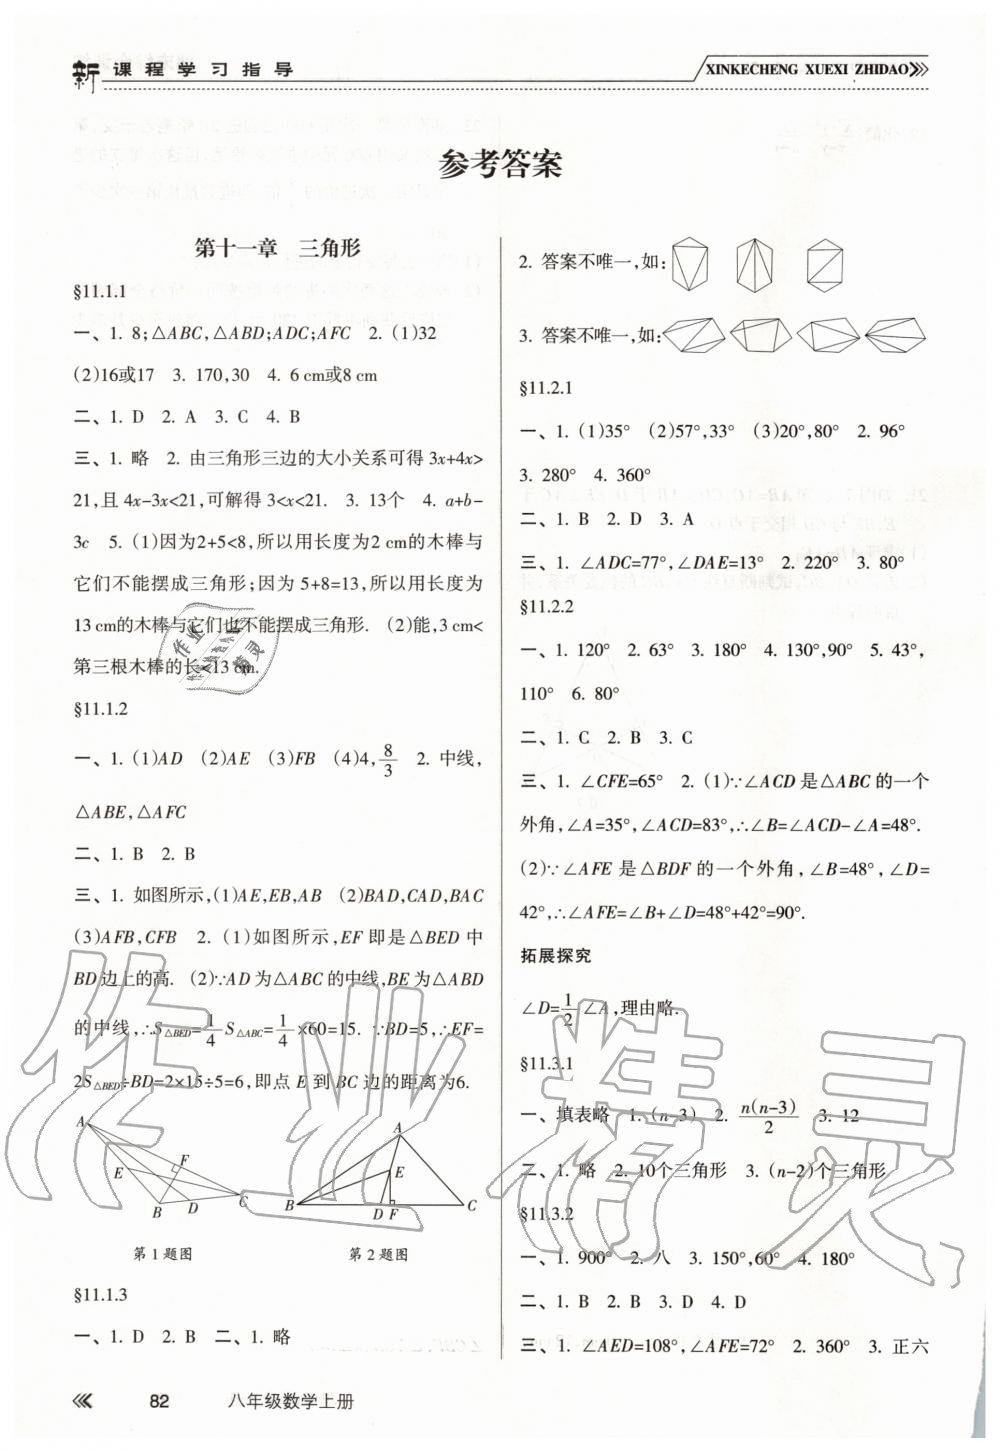 新课程学习指导
XINKECHENG XUEXI ZHIDAO
参考答案
第十一章 三角形
§11.1.1
一、1. 8;△ABC,△ABD;ADC;AFC 2. (1)32
(2)16或17 3. 170,30 4. 6 cm或8 cm
二、1. D 2. A 3. C 4. B
三、1. 略 2. 由三角形三边的大小关系可得 3x+4x>
21,且 4x-3x<21,可解得 3<x<21. 3. 13个 4. a+b-
3c 5. (1)因为2+5<8,所以用长度为2 cm的木棒与
它们不能摆成三角形;因为 5+8=13,所以用长度为
13 cm的木棒与它们也不能摆成三角形. (2)能,3 cm<
第三根木棒的长<13 cm.
§11.1.2
一、1. (1)AD (2)AE (3)FB (4)4,8/3 2. 中线,
△ABE,△AFC
二、1. B 2. B
三、1. 如图所示,(1)AE,EB,AB (2)BAD,CAD,BAC
(3)AFB,CFB 2. (1)如图所示,EF 即是△BED 中
BD边上的高. (2)∵AD 为△ABC 的中线,BE 为△ABD
的中线,∴S△BED=1/4 S△ABC=1/4×60=15. ∵BD=5,∴EF=
2S△BED÷BD=2×15÷5=6,即点 E 到 BC 边的距离为6.
A
F
E
B
D
C
第1题图
A
E
B
D
F
C
第2题图
§11.1.3
一、1. D 2. B 二、1. 略
2. 答案不唯一,如:
3. 答案不唯一,如:
§11.2.1
一、1. (1)35° (2)57°,33° (3)20°,80° 2. 96°
3. 280° 4. 360°
二、1. B 2. D 3. A
三、1. ∠ADC=77°,∠DAE=13° 2. 220° 3. 80°
§11.2.2
一、1. 120° 2. 63° 3. 180° 4. 130°,90° 5. 43°,
110° 6. 80°
二、1. C 2. B 3. C
三、1. ∠CFE=65° 2. (1)∵∠ACD 是△ABC 的一个
外角,∠A=35°,∠ACD=83°,∴∠B=∠ACD-∠A=48°.
(2)∵∠AFE 是△BDF 的一个外角,∠B=48°,∠D=
42°,∴∠AFE=∠B+∠D=48°+42°=90°.
拓展探究
∠D=1/2∠A,理由略.
§11.3.1
一、填表略 1. (n-3) 2. n(n-3)/2 3. 12
二、1. 略 2. 10个三角形 3. (n-2)个三角形
§11.3.2
一、1. 900° 2. 八 3. 150°,60° 4. 180°
二、1. B 2. B 3. D 4. D
三、1. ∠AED=108°,∠AFE=72° 2. 360° 3. 正六
82 八年级数学上册
作业精灵